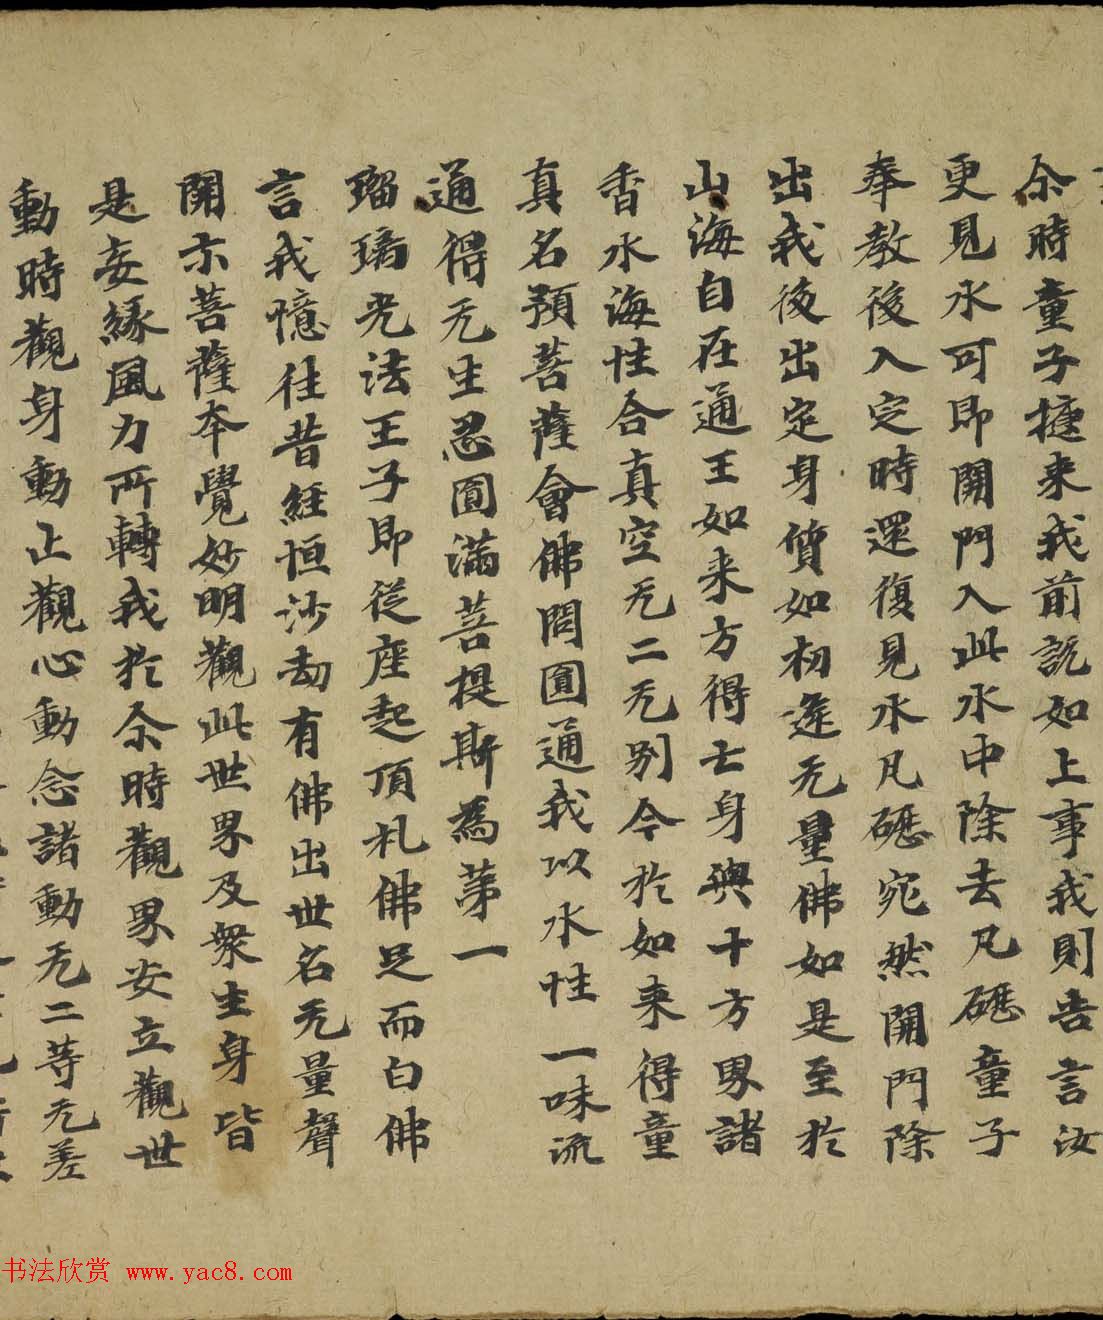 尒時童子揵来我前說如上事我則告言汝
更見水可即開門入此水中除去凡礰童子
奉教後入定時還復見水凡礰宛然開門除
出我後出定身質如初逢无量佛如是至於
山海自在通王如来方得亡身與十方界諸
香水海性合真空无二无别今於如来得童
真名預菩薩會佛問圓通我以水性一味流
通得无生忍圓滿菩提斯為苐一
瑠璃光法王子即從座起頂礼佛足而白佛
言我憶往昔經恒沙劫有佛出世名无量聲
開示菩薩本覺妙明觀此世界及衆生身皆
是妄緣風力所轉我於尒時觀界安立觀世
動時觀身動止觀心動念諸動无二等无差
书法欣赏 www.yac8.com